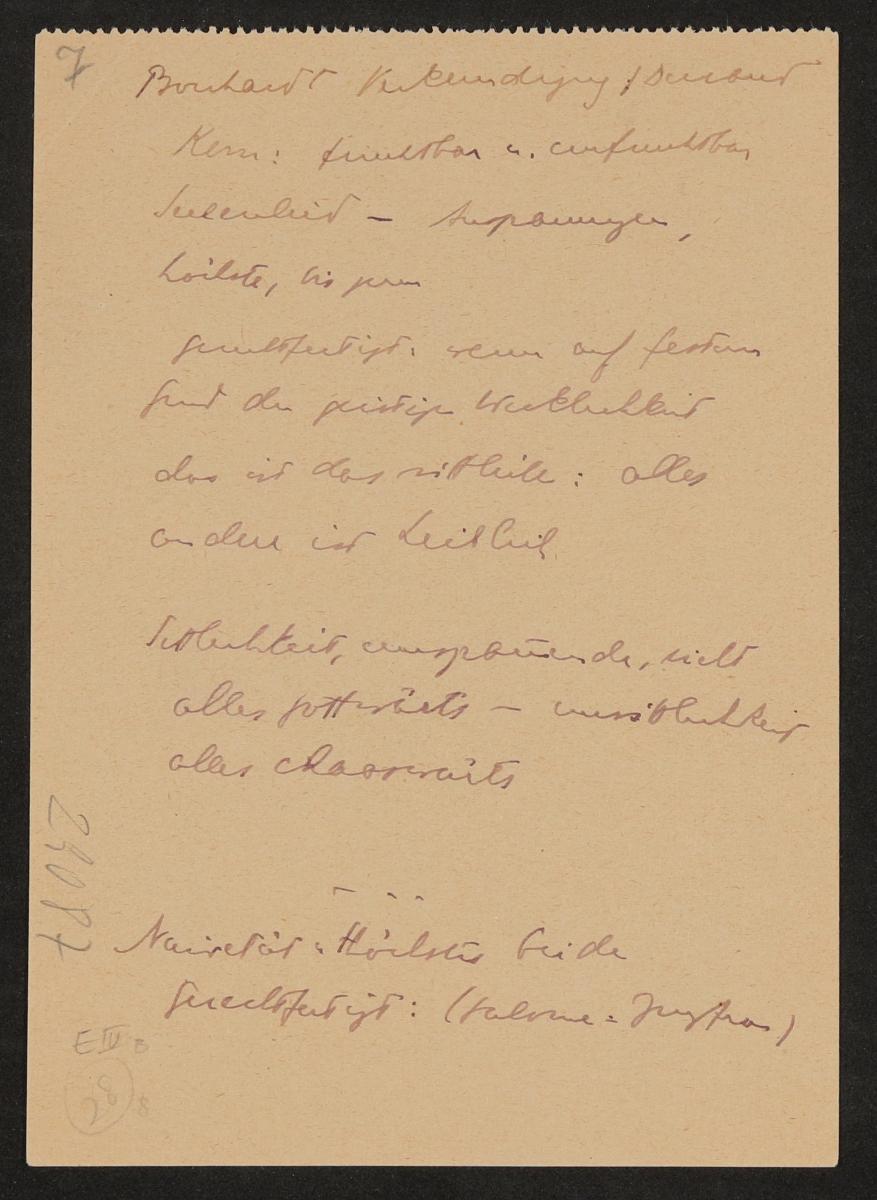 7
Borchardt Verkuendigung / Durant
Kern: fruchtbar u. unfruchtbar
– Anspannungen,
Höchste, bis zum
gerechtfertigt: wenn auf festem
Grund der geistigen Wirklichkeit
das ist das sittliche: alles
andere ist
Sittlichkeit, umspannende, sieht
alles gottwärts – Unsittlichkeit
alles chaoswärts
– - -
Naivetät u Höchstes beide
gerechtfertigt: (Salome = Jungfrau)
29087
E IV B
28
8